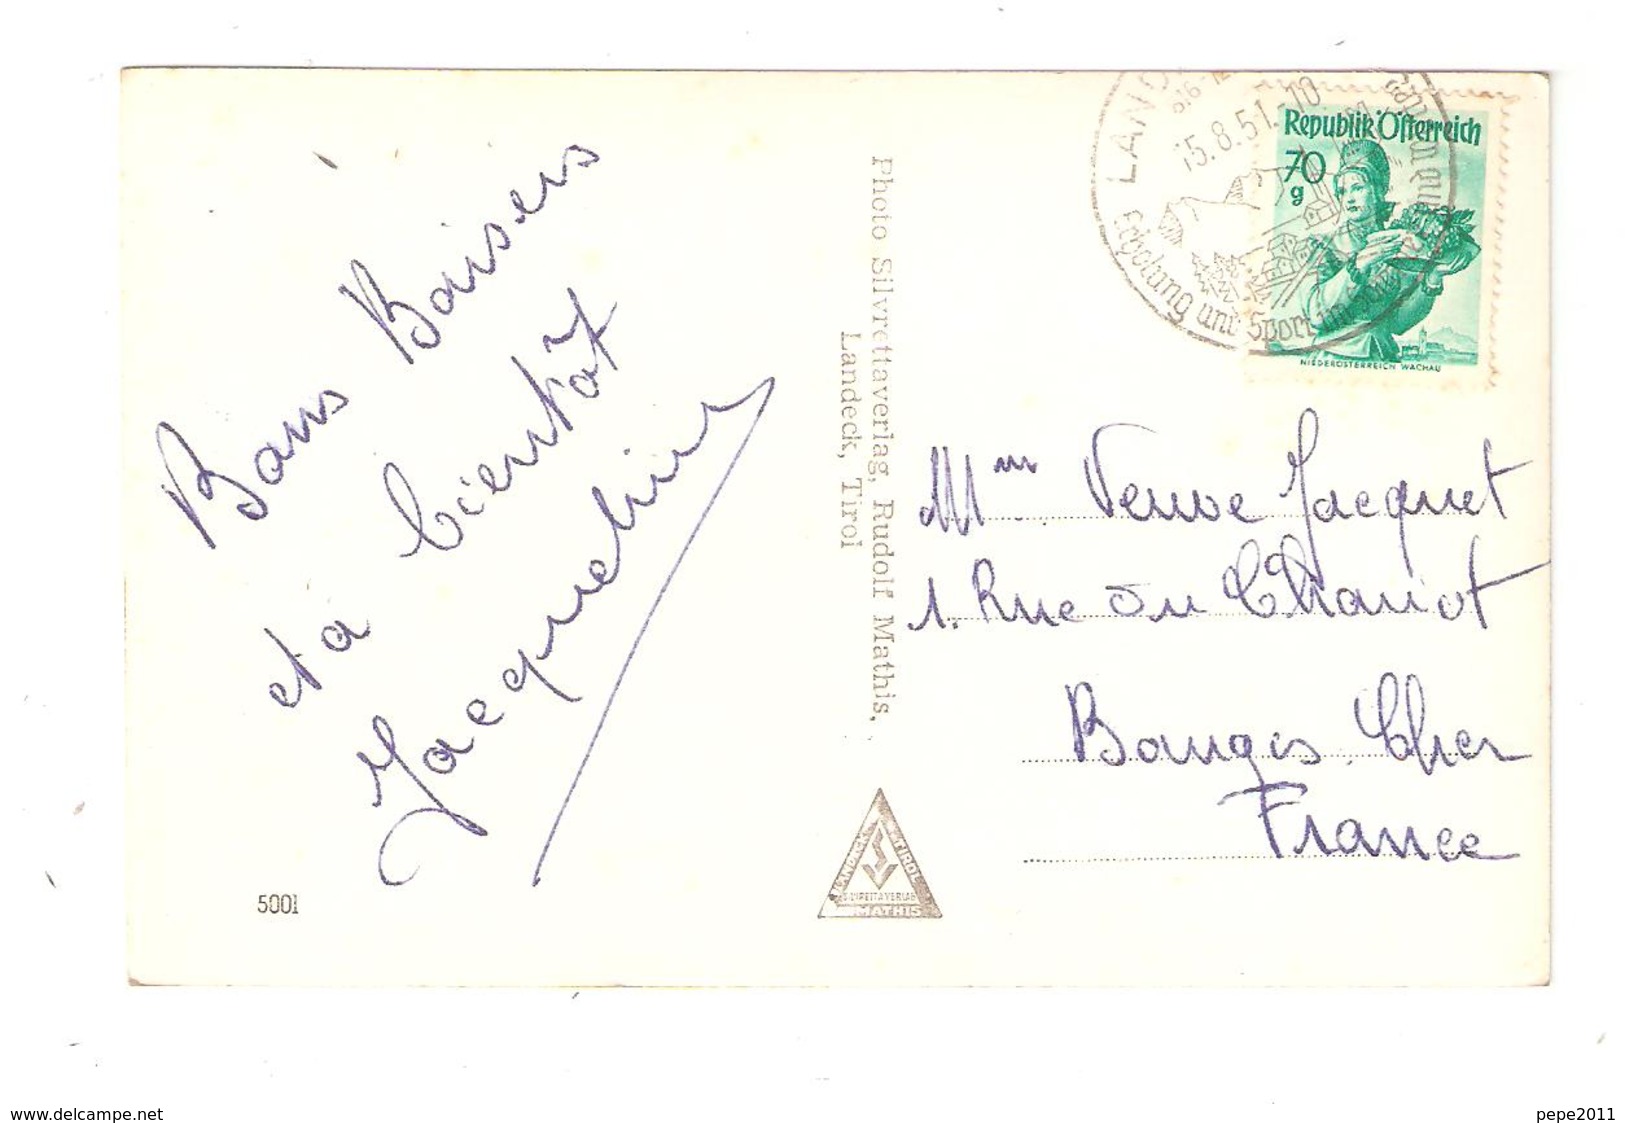 Bons Baisers
et à bientôt
Jacqueline
5001
Photo Silvrettaverlag, Rudolf Mathis,
Landeck, Tirol
LANDECK TIROL
SILVRETTAVERLAG
MATHIS
LAND
15.8.51.-10
Erholung und Sport im
Republik Österreich
70
g
NIEDERÖSTERREICH WACHAU
Mme Veuve Jacquet
1. Rue du Chariot
Bourges. Cher
France
www.delcampe.net
pepe2011